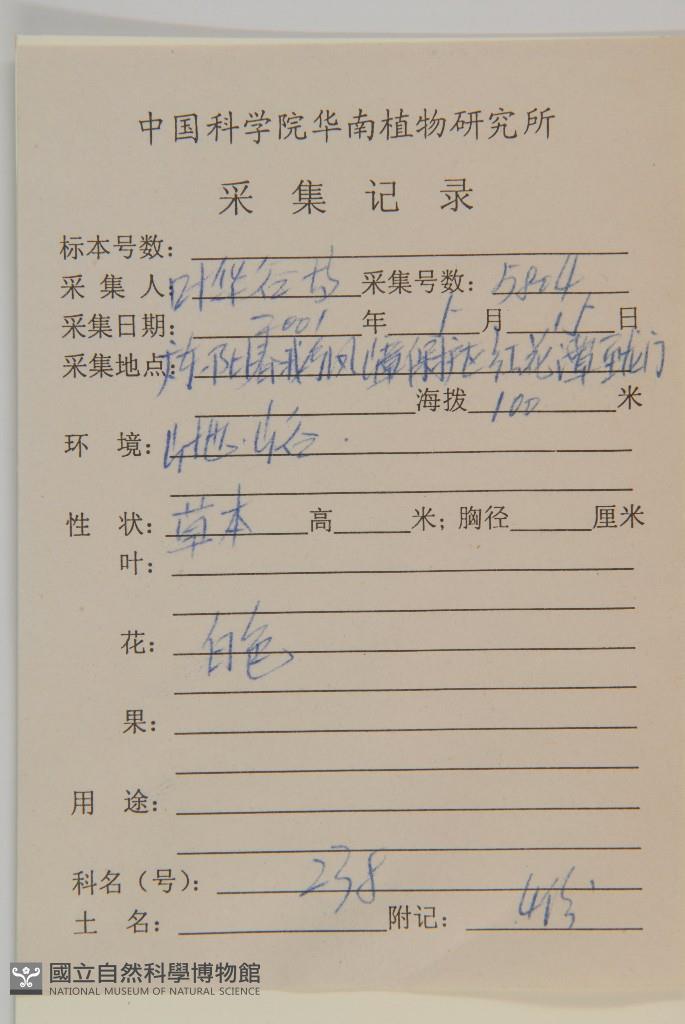 中国科学院华南植物研究所
采集记录
标本号数：
采集人：叶华谷 采集号数：5804
采集日期：2001年 月15日
采集地点： 保护区红花潭至龙门
海拨100米
环境：山谷.
性状：草本 高 米；胸径 厘米
叶：
花：白色
果：
用途：
科名（号）：238
土名： 附记：4份
國立自然科學博物館
NATIONAL MUSEUM OF NATURAL SCIENCE